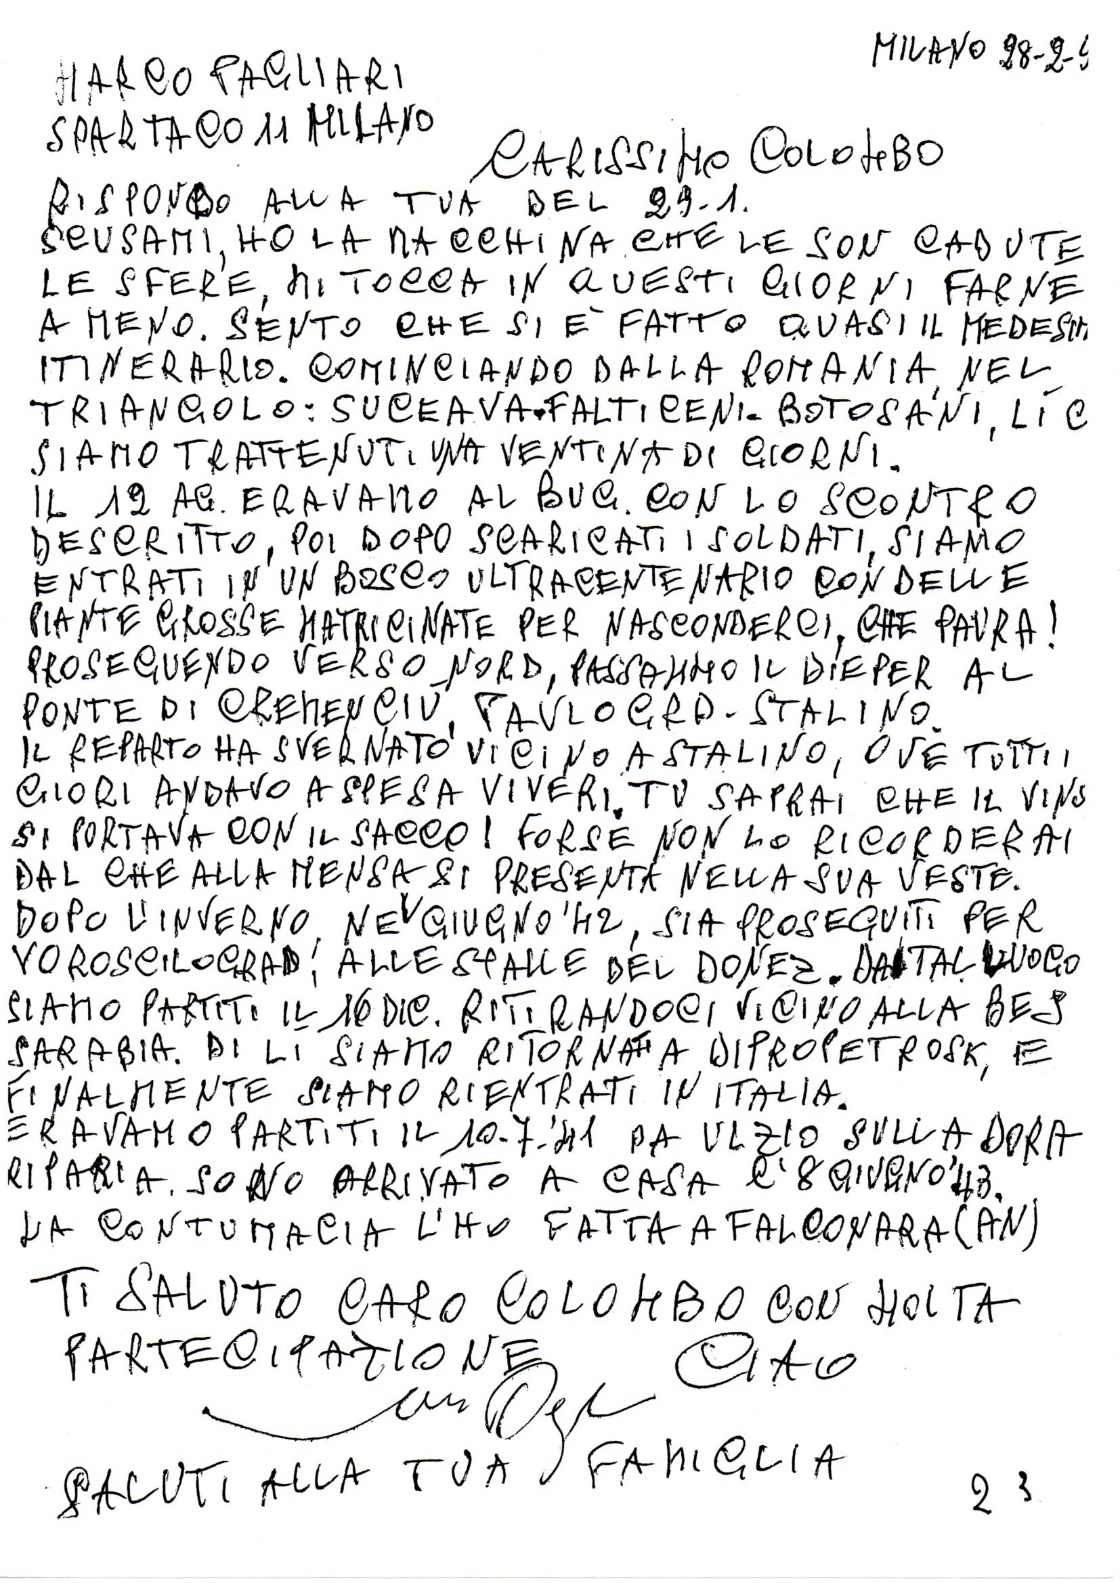 MILANO 28-2-
MARCO PAGLIARI
SPARTACO 11 MILANO
CARISSIMO COLOMBO
RISPONDO ALLA TUA DEL 29-1.
SCUSAMI, HO LA MACCHINA CHE LE SON CADUTE
LE SFERE, MI TOCCA IN QUESTI GIORNI FARNE
A MENO. SENTO CHE SI E` FATTO QUASI IL MEDESIM
ITINERARIO. COMINCIANDO DALLA ROMANIA, NEL
TRIANGOLO: SUCEAVA-FALTICENI-BOTOSANI, LÌ C
SIAMO TRATTENUTI UNA VENTINA DI GIORNI.
IL 12 AG. ERAVAMO AL BUG. CON LO SCONTRO
DESCRITTO, POI DOPO SCARICATI I SOLDATI, SIAMO
ENTRATI IN UN BOSCO ULTRACENTENARIO CON DELLE
PIANTE GROSSE MATRICINATE PER NASCONDERCI, CHE PAURA!
PROSEGUENDO VERSO NORD, PASSAMMO IL DIEPER AL
PONTE DI CREMENCIU, PAVLOGRD-STALINO.
IL REPARTO HA SVERNATO VICINO A STALINO, OVE TUTTI I
GIORI ANDAVO A SPESA VIVERI. TU SAPRAI CHE IL VINO
SI PORTAVA CON IL SACCO! FORSE NON LO RICORDERAI
DAL CHE ALLA MENSA SI PRESENTA NELLA SUA VESTE.
DOPO L'INVERNO, NEL GIUGNO '42, SIA PROSEGUITI PER
VOROSCILOGRAD, ALLE SPALLE DEL DONEZ. DA TAL LUOGO
SIAMO PARTITI IL 16 DIC. RITIRANDOCI VICINO ALLA BES
SARABIA. DI LI SIAMO RITORNATI A DIPROPETROSK, E
FINALMENTE SIAMO RIENTRATI IN ITALIA.
ERAVAMO PARTITI IL 10-7-'41 DA ULZIO SULLA DORA
RIPARIA. SONO ARRIVATO A CASA L'8 GIUGNO '43.
LA CONTUMACIA L'HO FATTA A FALCONARA (AN)
TI SALUTO CARO COLOMBO CON MOLTA
PARTECIPAZIONE CIAO
SALUTI ALLA TUA FAMIGLIA
23